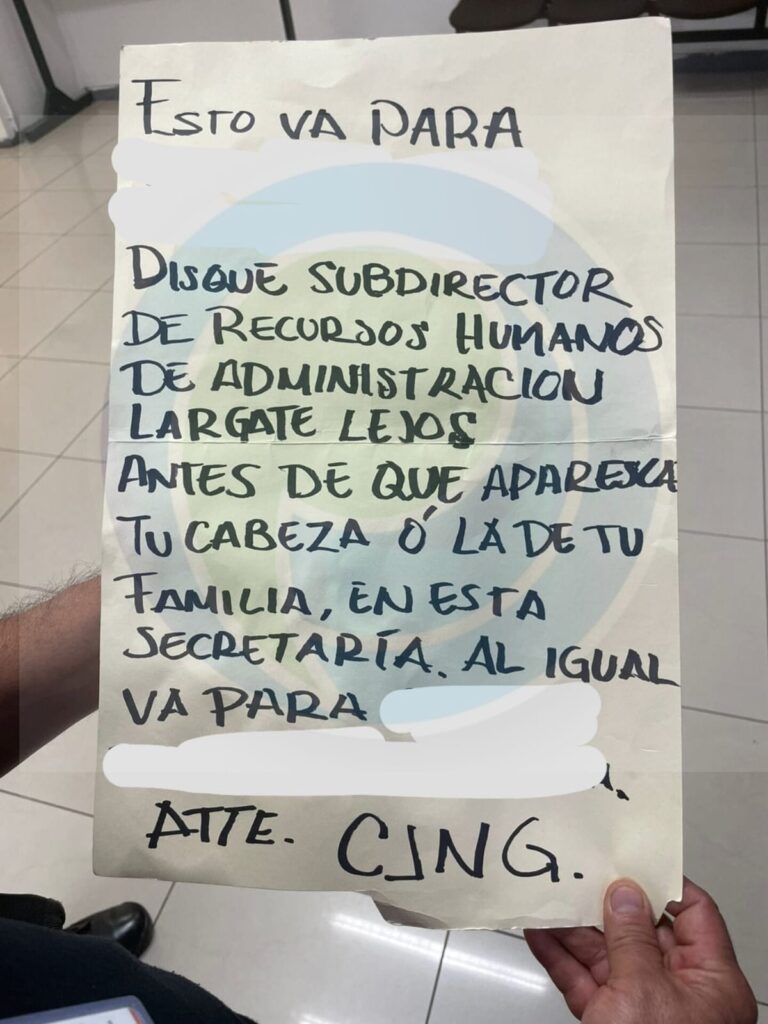 ESTO VA PARA
DISQUE SUBDIRECTOR
DE RECURSOS HUMANOS
DE ADMINISTRACION
LARGATE LEJOS
ANTES DE QUE APARESCA
TU CABEZA Ó LA DE TU
FAMILIA, EN ESTA
SECRETARÍA. AL IGUAL
VA PARA
ATTE. CJNG.